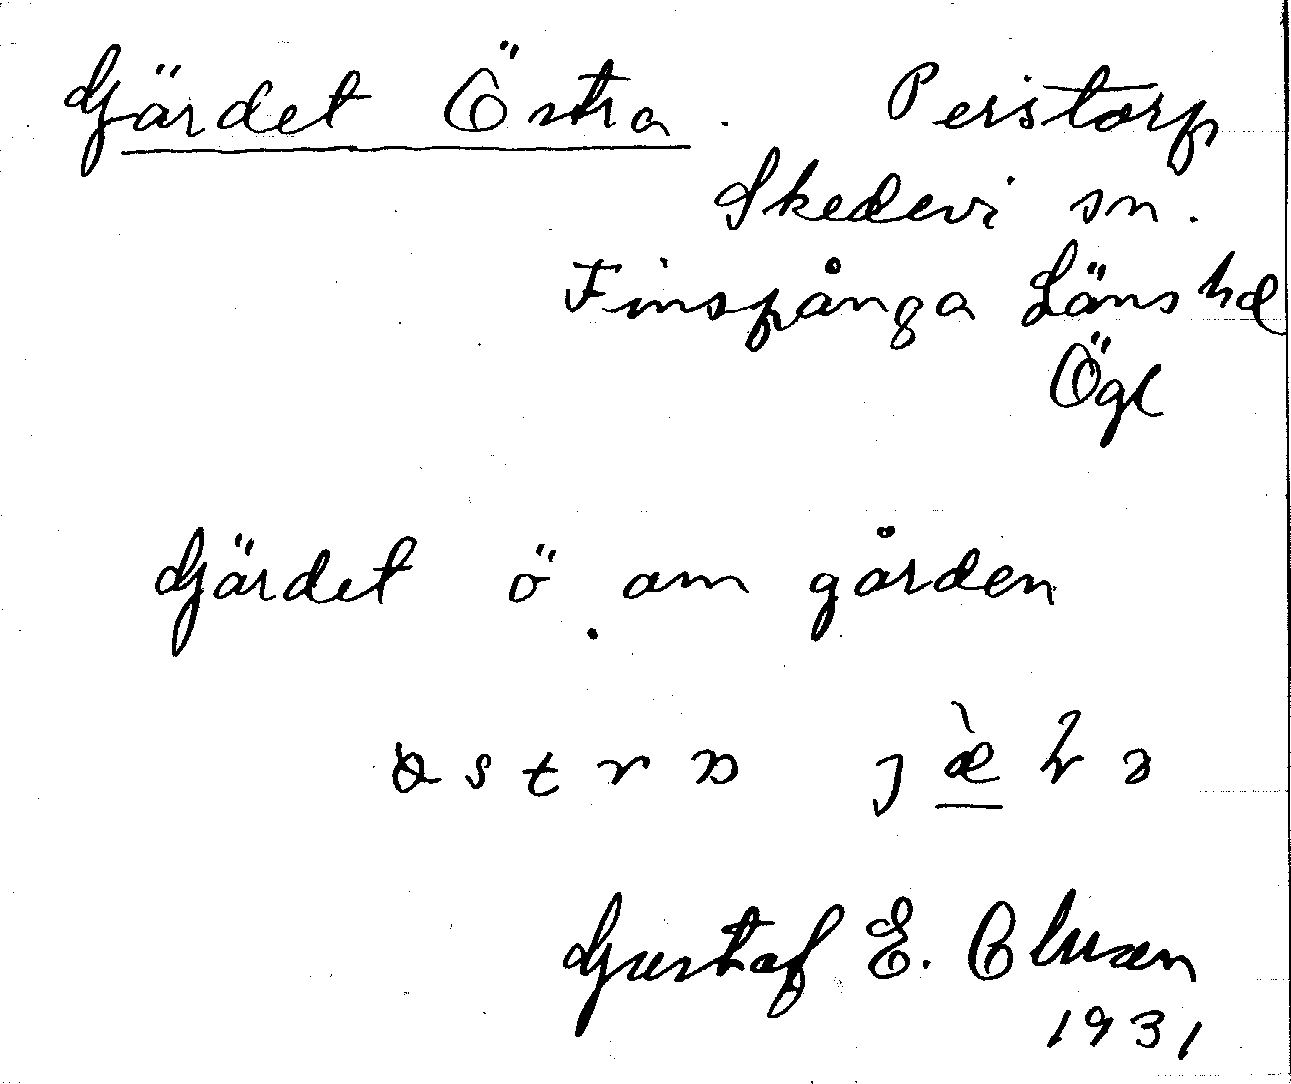 Gärdet Östra. Perstorp
Skedevi sn.
Finspånga Läns hd
Ögl
Gärdet ö om gården
Gustaf E.
1931